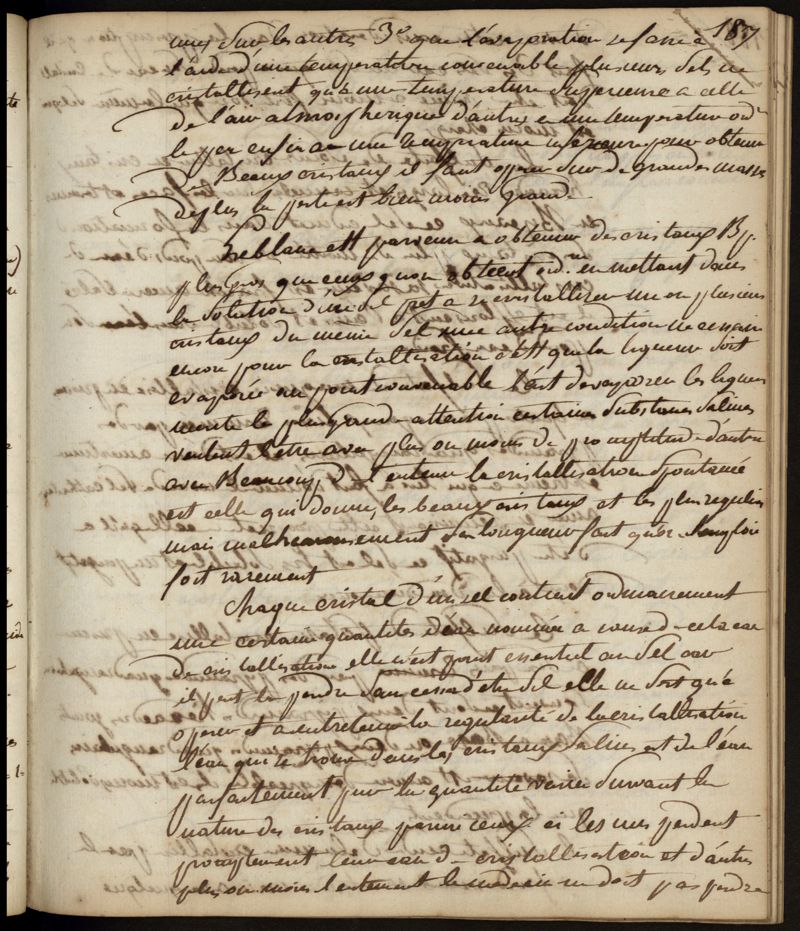 187
unes sur les autres 3e que l'évaporation se fasse à
l'aide d'une temperature convenable plusieurs sels ne
cristallisent qu'a une temperature superieure a celle
de l'air atmospherique d'autres en une temperature ordre
le per enfin a une temperature inferieure pour obtenir
Beaux cristaux il faut operer sur de grandes masses
de plus la perte est bien moins grande
Leblanc est parvenu a obtenir des cristaux Bp.
plus gros que ceux qu'on obtient ord.m en mettant dans
la solution d'un sel pret a recristalliser une ou plusieurs
cristaux du meme sel une autre condition necessaire
encore pour la cristallisation c'est que la liqueur soit
evaporée au point convenable l'art d'evaporer les liqueurs
merite la plus grande attention certaines substances salines
veulent l'etre avec plus ou moins de promptitude d'autre
avec Beaucoup de l'enteur la cristallisation spontanée
est celle qui donne les beaux cristaux et les plus reguliers
mais malheureusement sa longueur fait qu'on l'emploie
fort rarement
Chaque cristal d'un sel contient ordinairement
une certaine quantités d'eau nommée a cause de cela eau
de cristallisation elle n'est point essentiel au sel car
il peut la perdre sans cesser d'etre sel elle ne sert qu'a
operer et a entretenir la regularité de la cristallisation
l'eau qui se trouve dans les cristaux salins est de l'eau
parfaitement pur la quantité varie suivant la
nature des cristaux parmi ceux ci les uns perdent
promptement leur eau de cristallisation et d'autres
plus ou moins lentement le medecin ne doit pas perdre